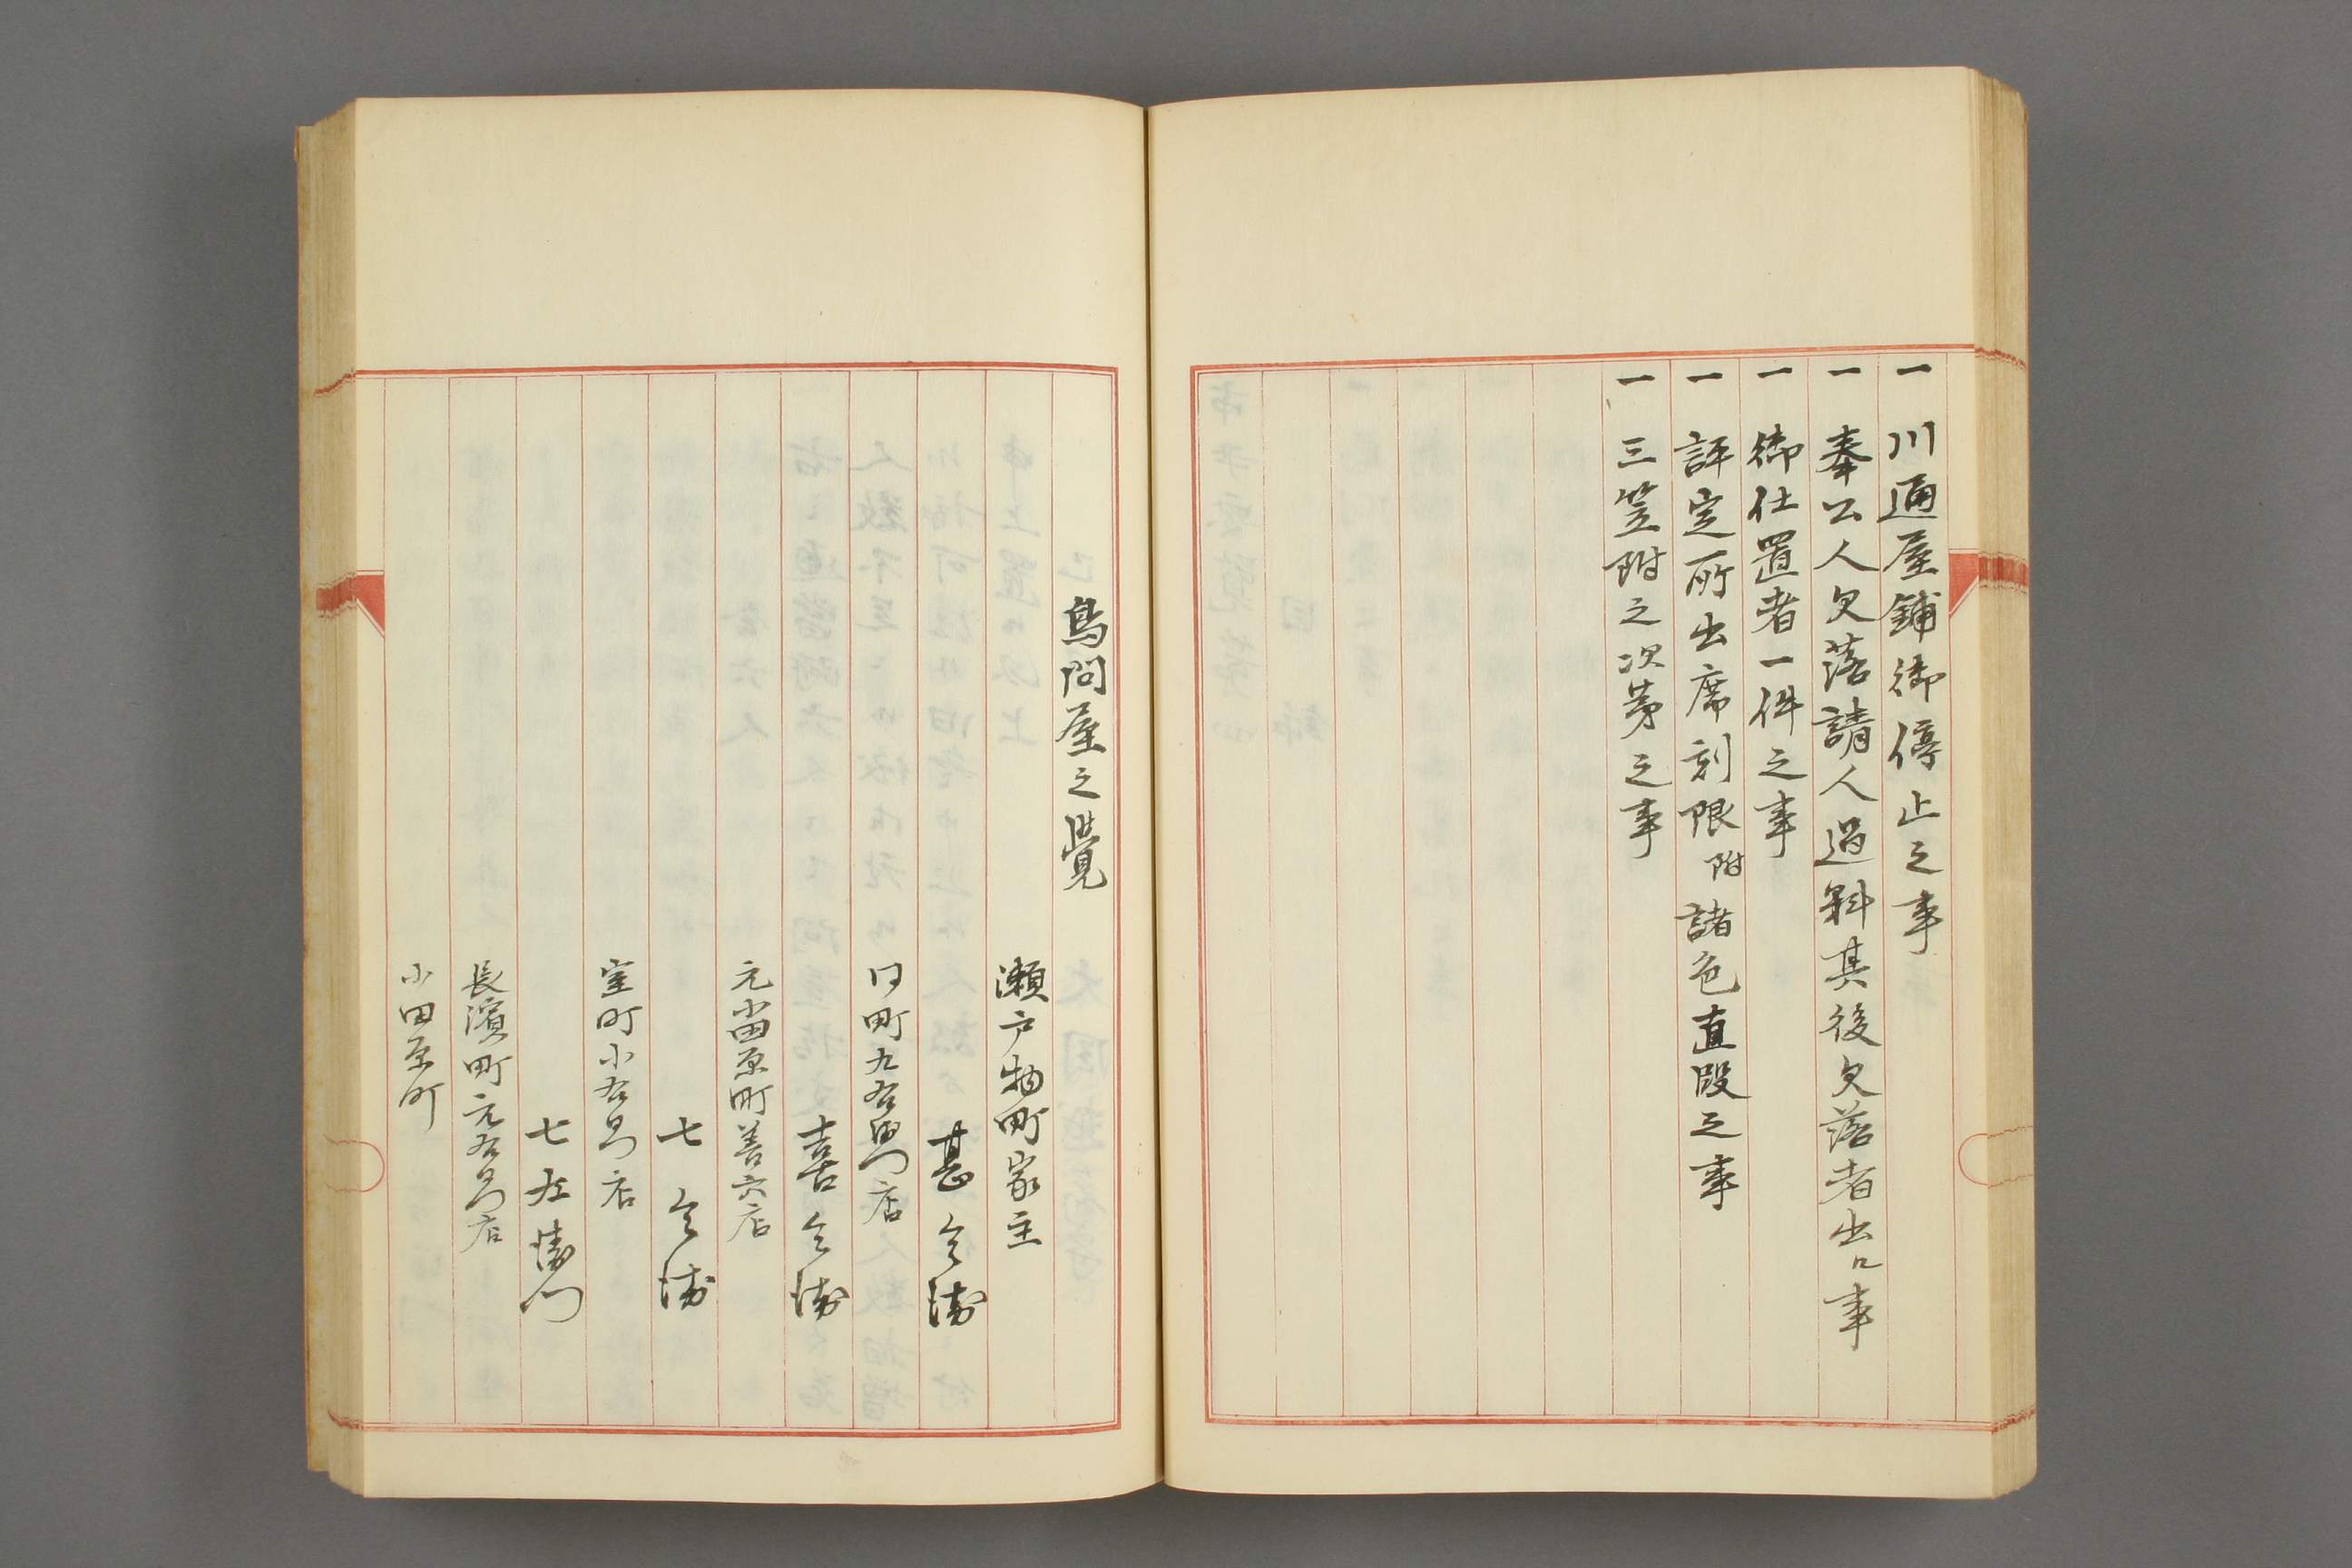 一 川通屋鋪御停止之事
一 奉公人欠落請人過料其後欠落者出口事
一 御仕置者一件之事
一 評定所出席刻限附諸色直段之事
一 三笠附之次第之事
鳥問屋之覺
瀬戸物町家主
甚兵衛
同町九右衛門店
喜兵衛
元小田原町善六店
七兵衛
室町小右衛門店
七左衛門
長濱町元右衛門店
小田原町